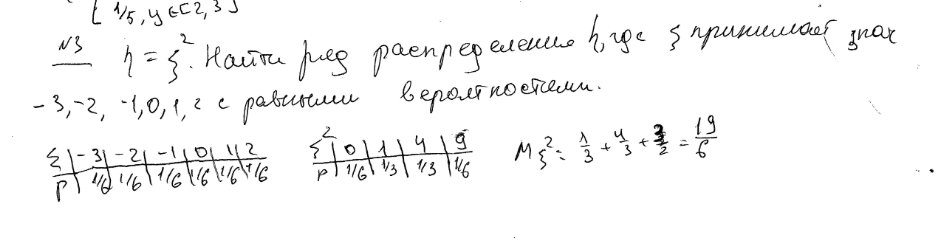 [ 1/5, y ∈ [2, 3]
N3 η = ξ². Найти ряд распределения η, где ξ принимает знач
-3, -2, -1, 0, 1, 2 с равными вероятностями.
ξ | -3 | -2 | -1 | 0 | 1 | 2
P | 1/6 | 1/6 | 1/6 | 1/6 | 1/6 | 1/6
ξ² | 0 | 1 | 4 | 9
P | 1/6 | 1/3 | 1/3 | 1/6
Mξ² = 1/3 + 4/3 + 3/2 = 19/6